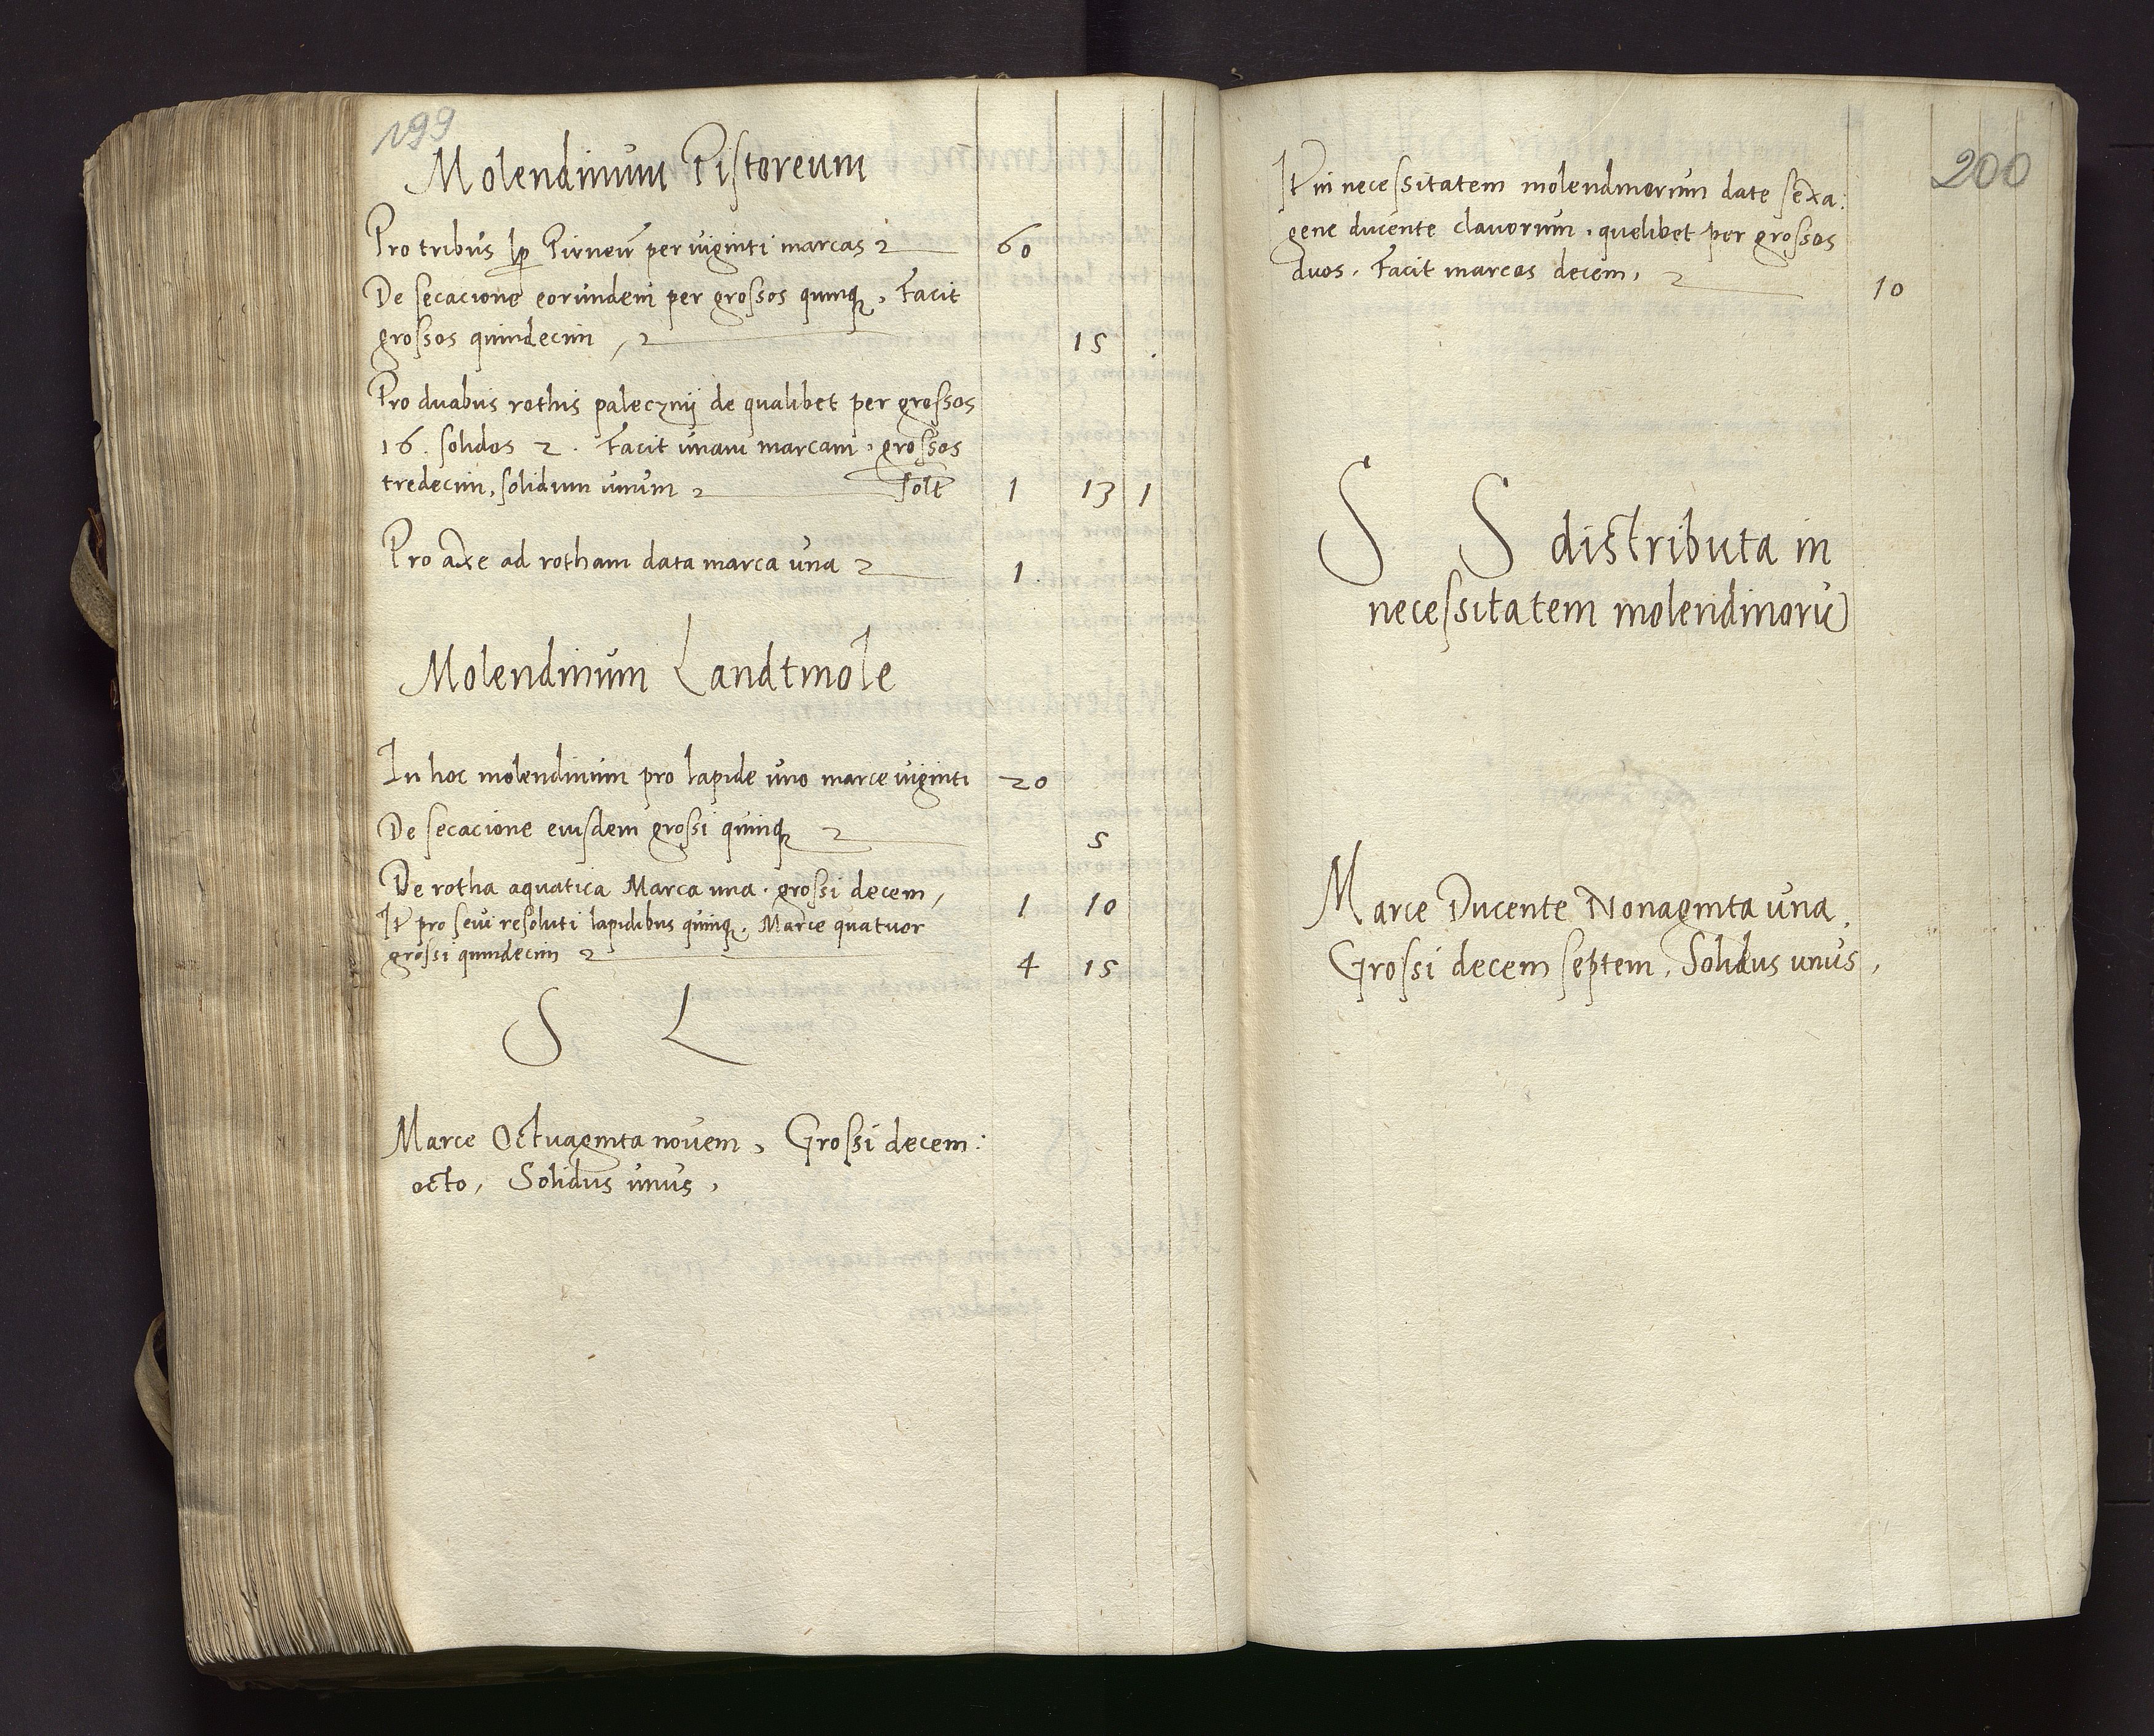 199
Molendinum Pistoreum
Pro tribus lp Pirnen per viginti marcas 60
De secacione eorundem per grossos quinq, Facit
grossos quindecim 15
Pro duabus rothis palecznij de qualibet per grossos
16. solidos 2. Facit unam marcam, grossos
tredecim, solidum unum solt 1 13 1
Pro axe ad rotham data marca una 1
Molendinum Landtmole
In hoc molendinum pro lapide uno marce viginti 20
De secacione eiusdem grossi quinq 5
De rotha aquatica Marca una. grossi decem, 1 10
It pro sevi resoluti lapidibus quinq. Marce quatuor
grossi quindecim 4 15
S L
Marce Octuaginta novem, Grossi decem:
octo, Solidus unus,
200
It in necessitatem molendinorum date sexa:
gene ducente clavorum, quelibet per grossos
duos. Facit marcas decem, 10
S S distributa in
necessitatem molendinoru
Marce Ducente Nonaginta una,
Grossi decem septem, Solidus unus,